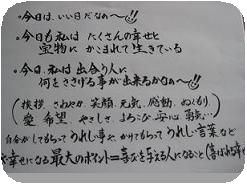 ・今日は、いい日だなぁ〜!!
・今日も私は たくさんの幸せと
宝物に かこまれて生きている
・今日、私は 出合う人に
何をささげる事が出来るかなぁ〜!!
(挨拶、さわやか、笑顔、元気、感動、ぬくもり、
愛、希望、やさしさ、よろこび、安心、勇気…)
自分がしてもらってうれしい事や、かけてもらってうれしい言葉など
幸せになる最大のポイントー喜びを与える人になること(喜ばれる